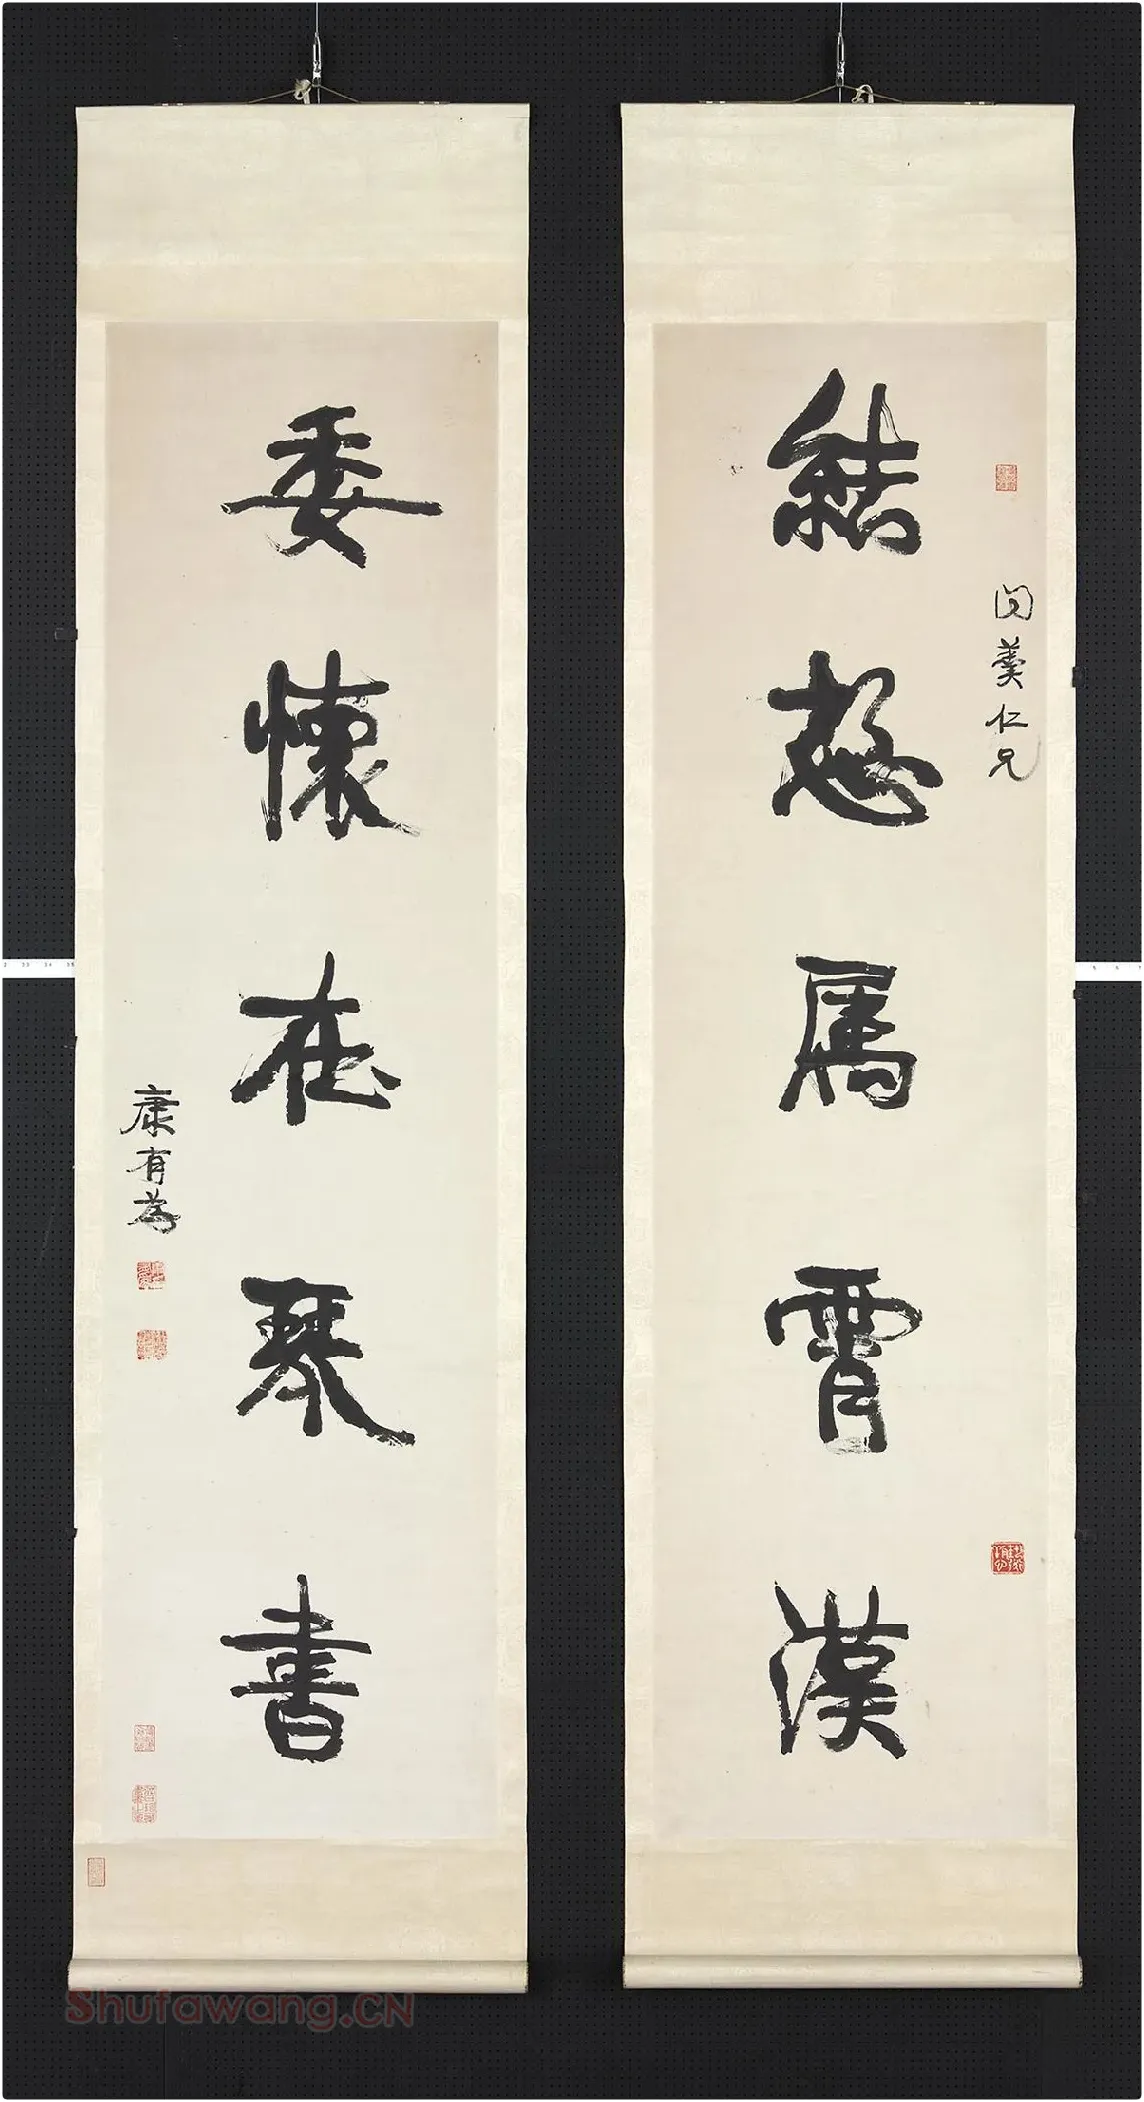 結想屬霄漢
仁兄
委懷在琴書
康有為
Shufawang.CN